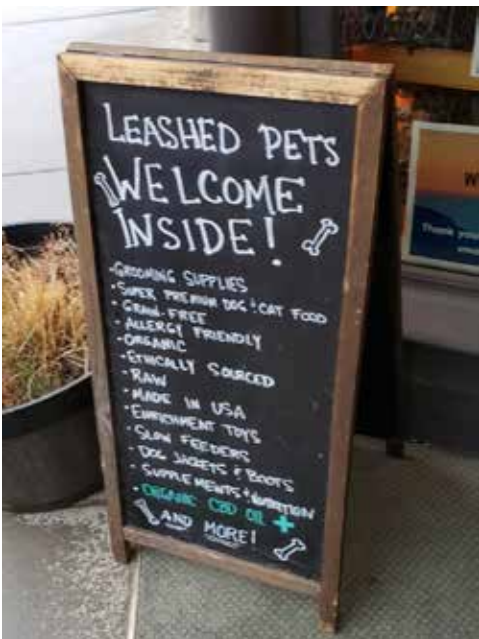 LEASHED PETS
WELCOME
INSIDE!
-GROOMING SUPPLIES
-SUPER PREMIUM DOG & CAT FOOD
-GRAIN-FREE
-ALLERGY FRIENDLY
-ORGANIC
-ETHICALLY SOURCED
-RAW
-MADE IN USA
-ENRICHMENT TOYS
-SLOW FEEDERS
-DOG JACKETS & BOOTS
-SUPPLEMENTS + NUTRITION
-ORGANIC CBD OIL +
AND MORE!
Thank you